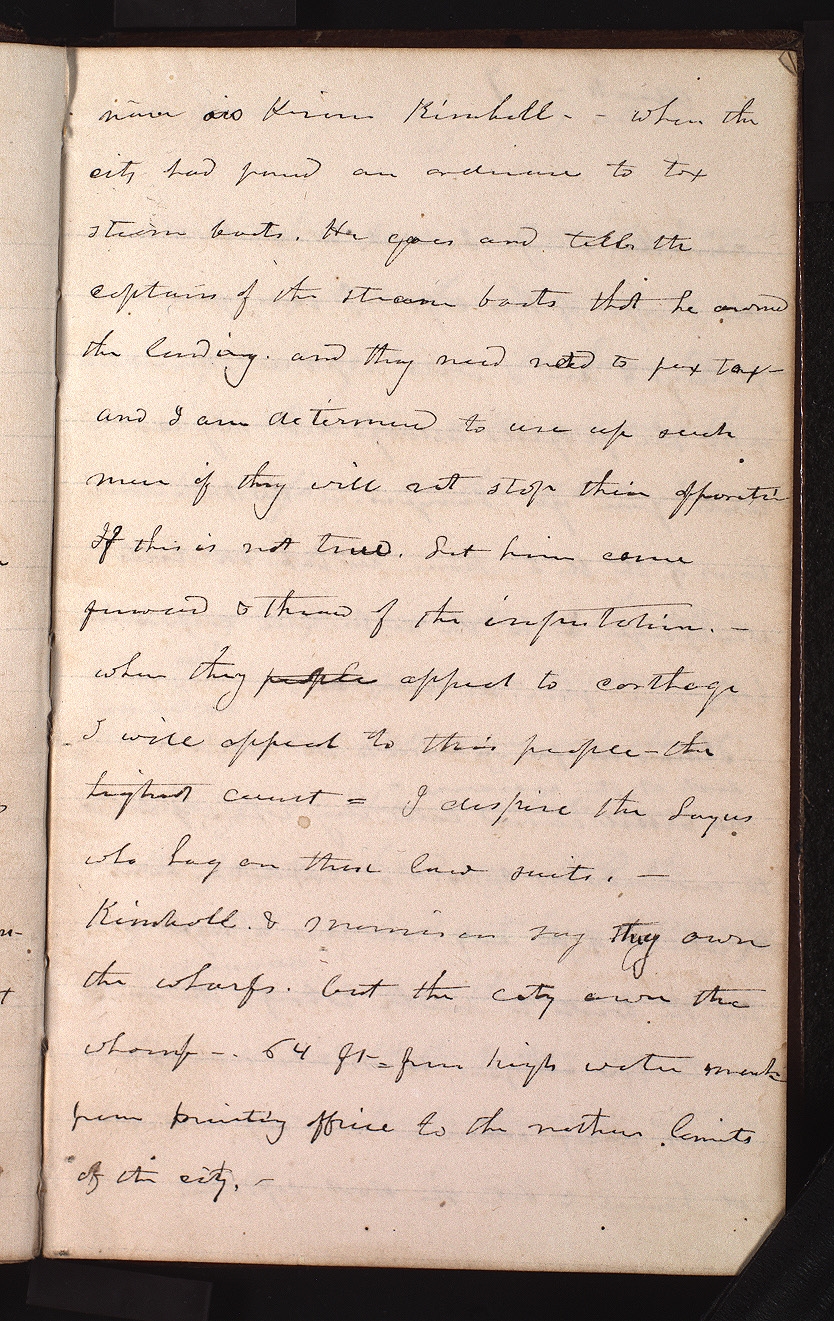 name is Hiram Kimball - - when the
city had passed an ordinance to tax
steam boats. He goes and tells the
captains of the steam boats that he owned
the landing. and they need not to pay tax -
and I am determined to use up such
men if they will not stop their opposition
If this is not true. Let him come
forward & throw off the imputation. -
when they ~~people~~ appeal to carthage
I will appeal to this people - the
highest court = I despise the Lawyers
who hag on these law suits. -
Kimball. & morrison say they own
the wharfs. but the city own the
wharf - . 64 ft = from high water mark
from printing office to the nothern limits
of the city. -